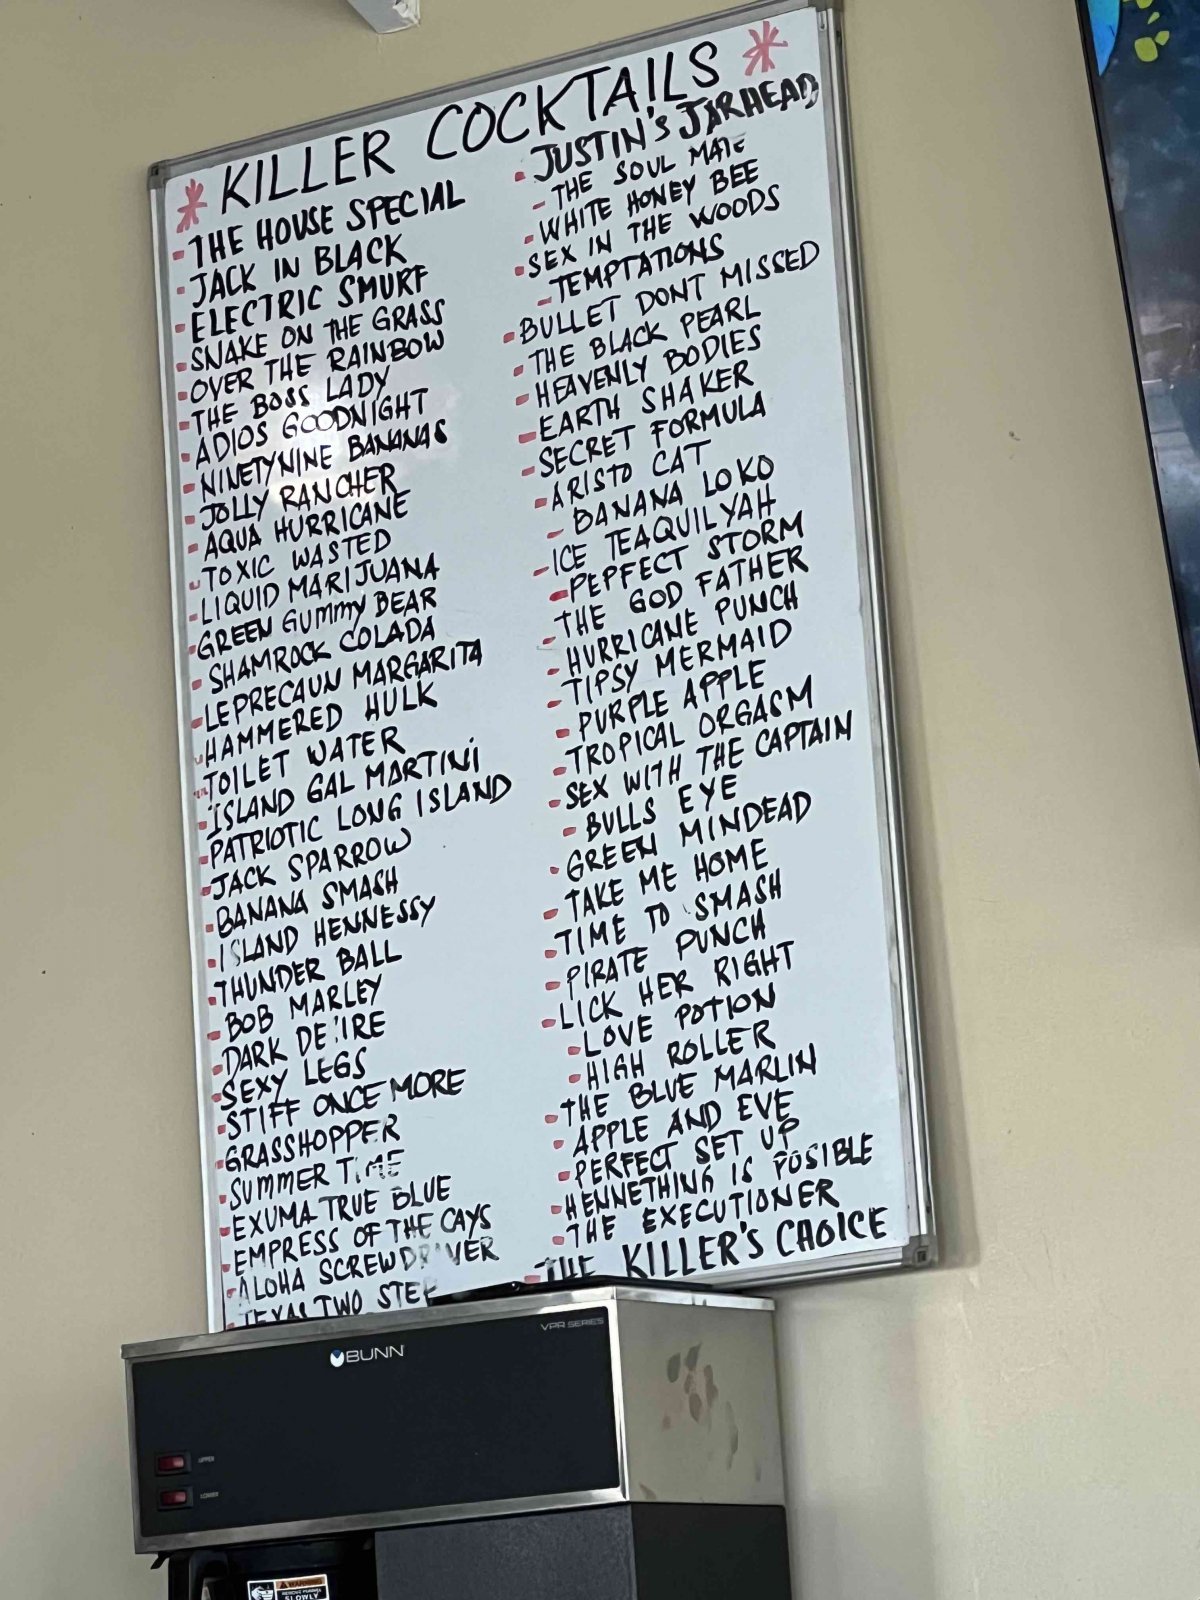 KILLER COCKTAILS
- THE HOUSE SPECIAL
- JACK IN BLACK
- ELECTRIC SMURF
- SNAKE ON THE GRASS
- OVER THE RAINBOW
- THE BOSS LADY
- ADIOS GOODNIGHT
- NINETYNINE BANANAS
- JOLLY RANCHER
- AQUA HURRICANE
- TOXIC WASTED
- LIQUID MARIJUANA
- GREEN GUMMY BEAR
- SHAMROCK COLADA
- LEPRECAUN MARGARITA
- HAMMERED HULK
- TOILET WATER
- ISLAND GAL MARTINI
- PATRIOTIC LONG ISLAND
- JACK SPARROW
- BANANA SMASH
- ISLAND HENNESSY
- THUNDER BALL
- BOB MARLEY
- DARK DESIRE
- SEXY LEGS
- STIFF ONCE MORE
- GRASSHOPPER
- SUMMER TIME
- EXUMA TRUE BLUE
- EMPRESS OF THE CAYS
- ALOHA SCREWDRIVER
- TEXAS TWO STEP
- JUSTIN'S JARHEAD
- THE SOUL MATE
- WHITE HONEY BEE
- SEX IN THE WOODS
- TEMPTATIONS
- BULLET DONT MISSED
- THE BLACK PEARL
- HEAVENLY BODIES
- EARTH SHAKER
- SECRET FORMULA
- ARISTO CAT
- BANANA LOKO
- ICE TEAQUILYAH
- PEPFECT STORM
- THE GOD FATHER
- HURRICANE PUNCH
- TIPSY MERMAID
- PURPLE APPLE
- TROPICAL ORGASM
- SEX WITH THE CAPTAIN
- BULLS EYE
- GREEN MINDEAD
- TAKE ME HOME
- TIME TO SMASH
- PIRATE PUNCH
- LICK HER RIGHT
- LOVE POTION
- HIGH ROLLER
- THE BLUE MARLIN
- APPLE AND EVE
- PERFECT SET UP
- HENNETHING IS POSIBLE
- THE EXECUTIONER
- THE KILLER'S CHOICE
VPR SERIES
BUNN
UPPER
LOWER
WARNING
SLOWLY